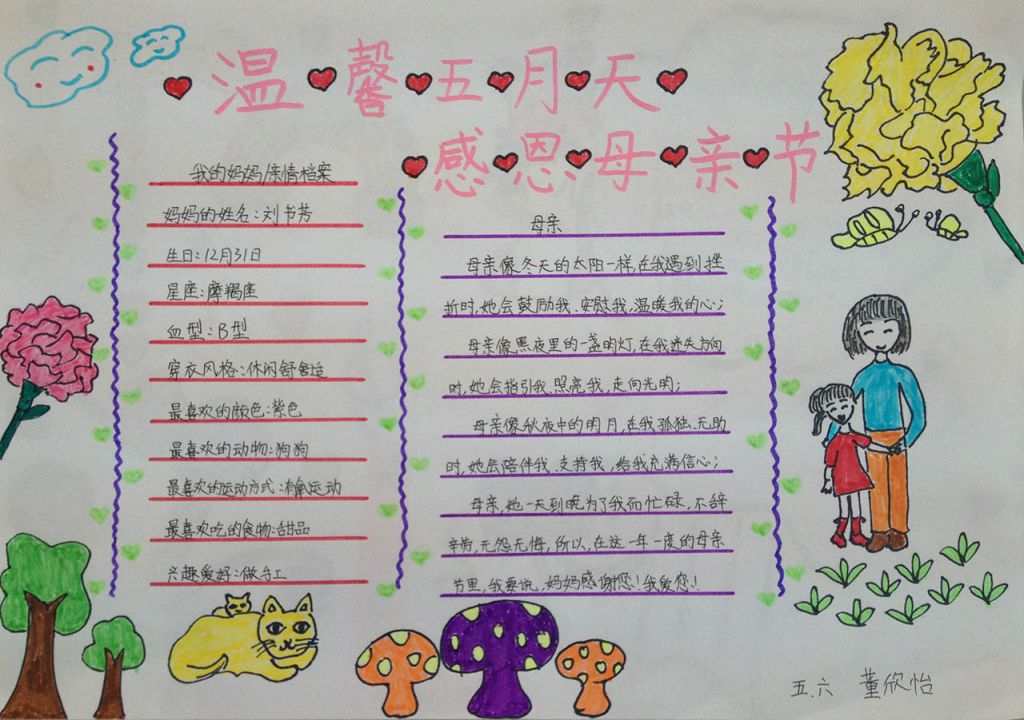 温馨五月天
感恩母亲节
我的妈妈/亲情档案
妈妈的姓名:刘书芳
生日:12月31日
星座:摩羯座
血型:B型
穿衣风格:休闲舒适
最喜欢的颜色:紫色
最喜欢的动物:狗狗
最喜欢的运动方式:有氧运动
最喜欢吃的食物:甜品
兴趣爱好:做手工
母亲
母亲像冬天的太阳一样,在我遇到挫
折时,她会鼓励我、安慰我,温暖我的心;
母亲像黑夜里的一盏明灯,在我迷失方向
时,她会指引我、照亮我,走向光明;
母亲像秋夜中的明月,在我孤独、无助
时,她会陪伴我、支持我,给我充满信心;
母亲,她一天到晚为了我而忙碌,不辞
辛劳,无怨无悔,所以,在这一年一度的母亲
节里,我要说,妈妈感谢您!我爱您!
五、六 董欣怡